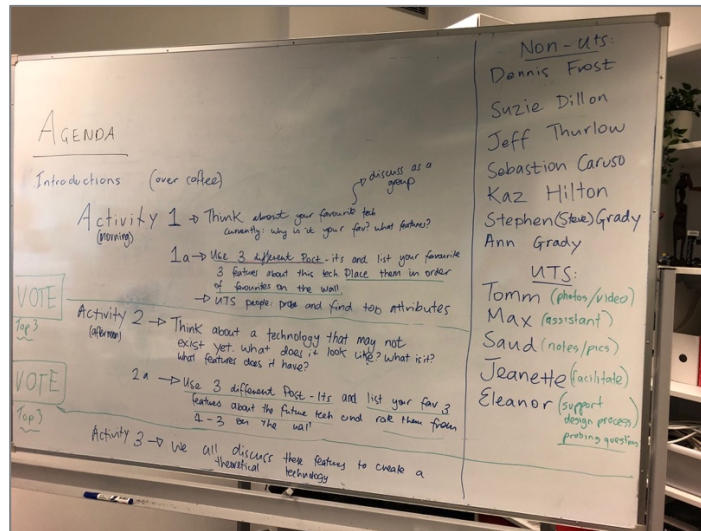 AGENDA
Introductions (over coffee)
discuss as a
group
Activity 1 → Think about your favourite tech
(morning) currently: why is it your fav? what features?
1a → Use 3 different Post-its and list your favourite
3 features about this tech Place them in order
of favourites on the wall
→ UTS people: and find top attributes
VOTE
Top 3
Activity 2 → Think about a technology that may not
(afternoon) exist yet. What does it look like? What is it?
what features does it have?
2a → Use 3 different Post-Its and list your fav 3
features about the future tech and rate them from
1-3 on the wall
VOTE
Top 3
Activity 3 → We all discuss these features to create a
theoretical technology
Non-UTS:
Dennis Frost
Suzie Dillon
Jeff Thurlow
Sebastian Caruso
Kaz Hilton
Stephen (Steve) Grady
Ann Grady
UTS:
Tomm (photos/video)
Max (assistant)
Saud (notes/pics)
Jeanette (facilitate)
Eleanor (support
design process)
probing questions